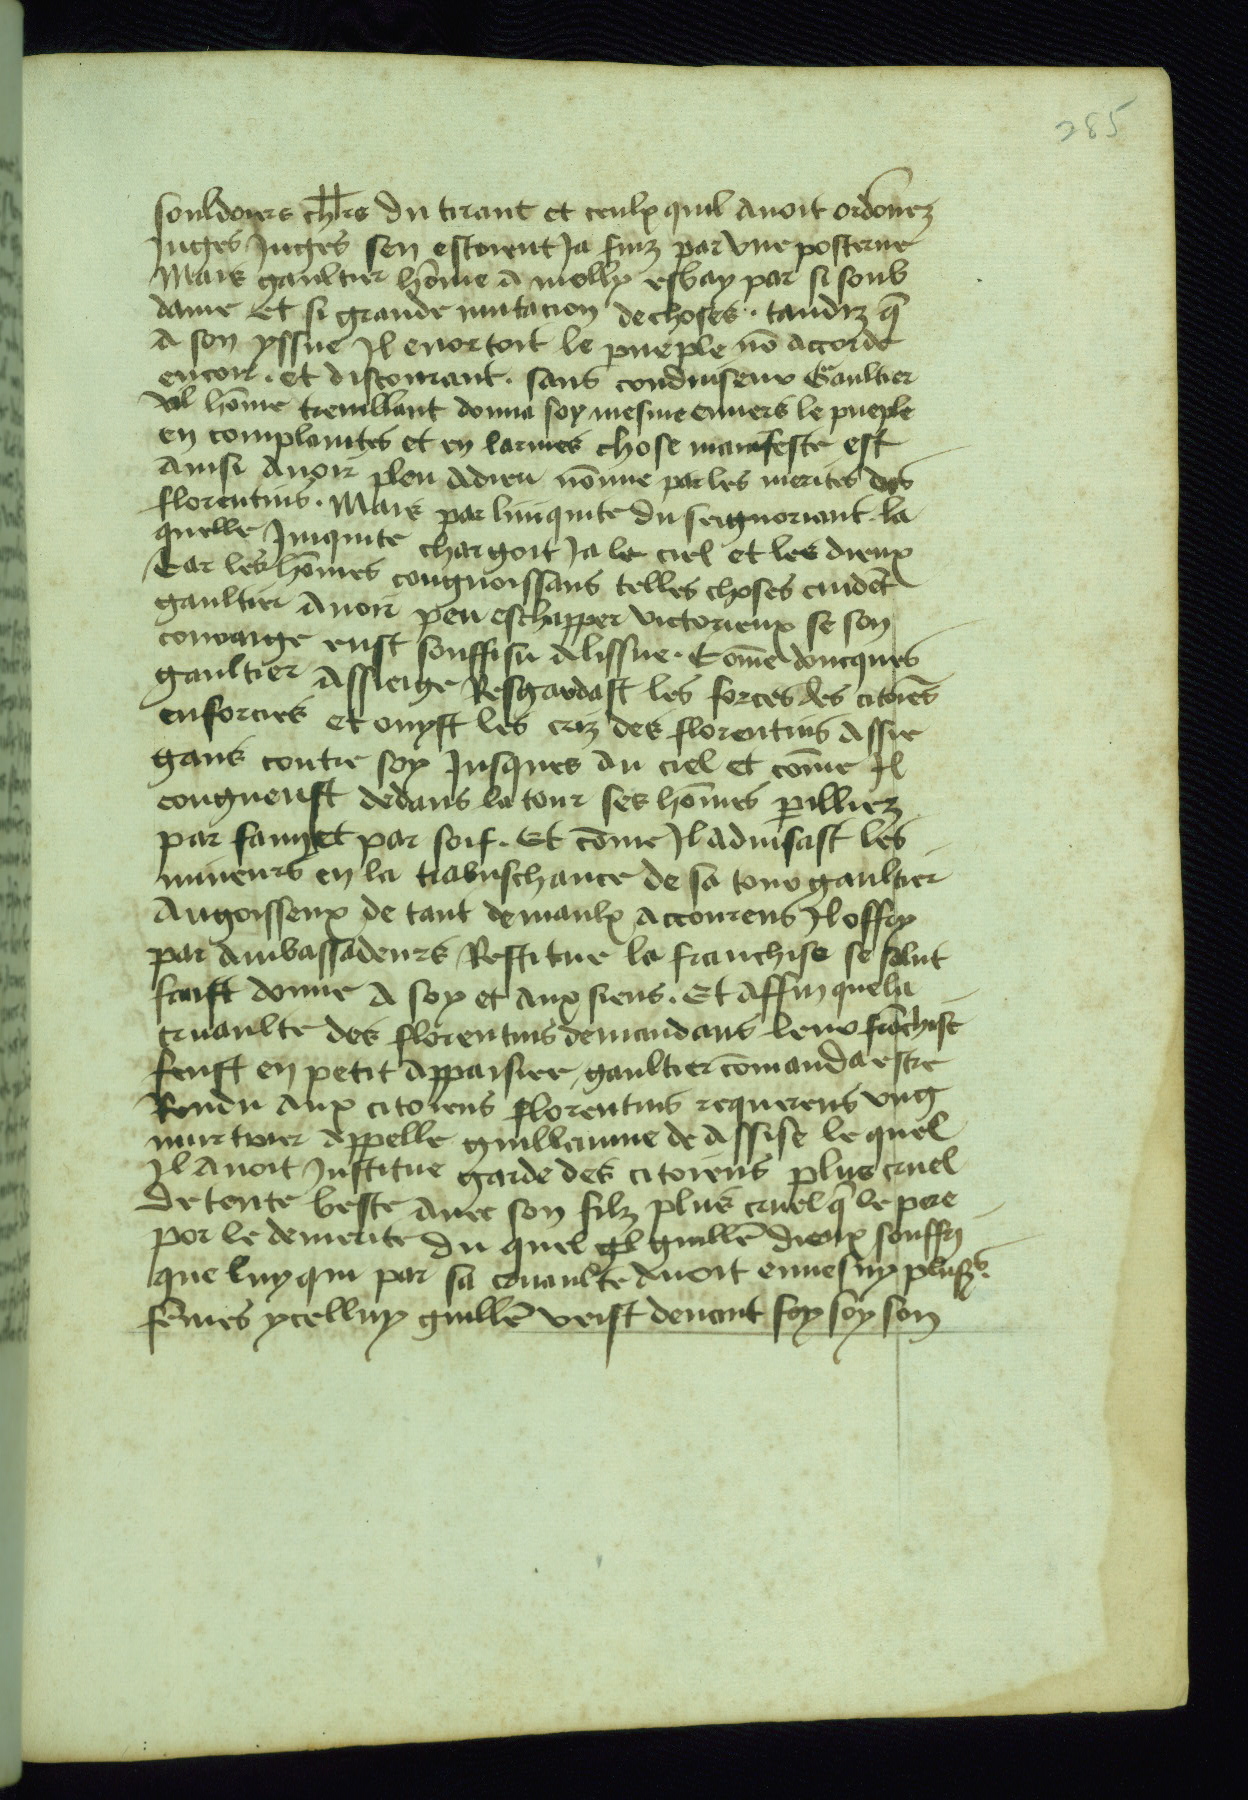 285
souldoiers ch̄rs du tirant et ceulx quil auoit ordōnez
Juges Juges sen estoient Ja fuiz par vne posterne
Mais gaultier hōme amolly esbay par si soub
daine et si grande mutacion de choses . tandiz q̄
a son yssue Il enortoit le pueple nō accorde
encor . et discourant . sans conduiseur Gaultier
vil hōme tremblant donna soy mesme enuers le pueple
en complaintes et en larmes chose manifeste est
ainsi auoir pleu a dieu nōmie par les merites des
florentins . Mais par liniquite du seignoriant . la
quelle Iniquite chargoit Ja le ciel et les dieux
Car les hōmes congnoissans telles choses cuidēt
gaultier auoir peu eschapper victorieux se son
couraige eust souffisu a lissue . Cōme doncques
gaultier assiege Resgardast les forces des citoiēs
enforcies et ouyst les criz des florentins assie
gans contre soy Jusques au ciel et cōme Il
congneust dedans la tour ses hōmes perilliez
par faim et par soif . Et cōme Il aduisast les
mineurs en la trabuschance de sa tour gaultier
Angoisseux de tant de maulx accourens Il offry
par ambassadeurs Restitue la franchise se salut
faust donne a soy et aux siens . Et affin que la
cruaulte des florentins demandans leur frāchise
feust en petit appaisiee gaultier cōmanda estre
Rendu aux citoiens florentins requerens vng
murtrier appelle guillaume de assise le quel
Il auoit Institue garde des citoiens plus cruel
de toute beste auec son filz plus cruel q̄ le pere
por le demerite du quel guillē dieux souffry
que luy qui par sa cruaulte auoit
fēmes ycelluy guillē veist deuant soy soy son